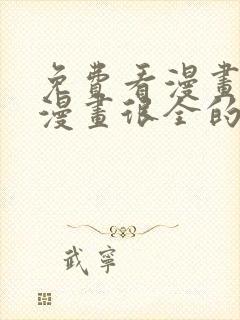 免費看漫畫
漫畫很全的
武寧